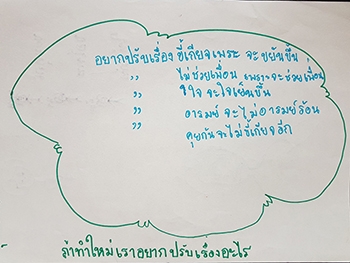 อยากปรับเรื่อง ขี้เกียจเพราะ จะขยันขึ้น
" ไม่ช่วยเพื่อน เพราะจะช่วยเพื่อน
" ใจ จะใจเย็นขึ้น
" อารมย์ จะไม่อารมย์ร้อน
" คุยกันจะไม่ขี้เกียจอีก
ถ้าทำใหม่เราอยากปรับเรื่องอะไร